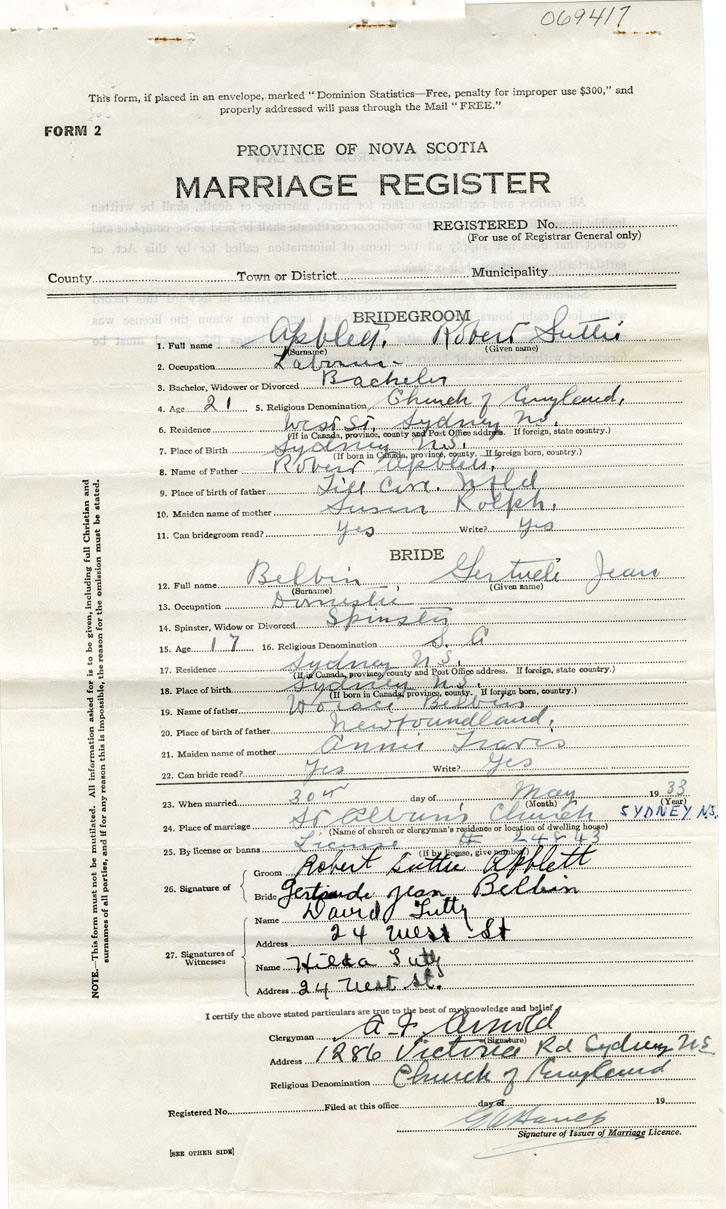 069417
This form, if placed in an envelope, marked "Dominion Statistics—Free, penalty for improper use $300," and
properly addressed will pass through the Mail "FREE."
FORM 2
PROVINCE OF NOVA SCOTIA
MARRIAGE REGISTER
REGISTERED No.
(For use of Registrar General only)
County Town or District Municipality
BRIDEGROOM
1. Full name Apblett, Robert Suttie
(Surname) (Given name)
2. Occupation Laborer
3. Bachelor, Widower or Divorced Bachelor
4. Age 21 5. Religious Denomination Church of England,
6. Residence West St. Sydney N.S.
(If in Canada, province, county and Post Office address. If foreign, state country.)
7. Place of Birth Sydney N.S.
(If born in Canada, province, county. If foreign born, country.)
8. Name of Father Robert Apblett,
9. Place of birth of father Cove, Nfld
10. Maiden name of mother Susan Rolph,
11. Can bridegroom read? Yes Write? Yes
BRIDE
12. Full name Belbin, Gertrude Jean
(Surname) (Given name)
13. Occupation Domestic
14. Spinster, Widow or Divorced Spinster
15. Age 17 16. Religious Denomination S. A
17. Residence Sydney N.S.
(If in Canada, province, county and Post Office address. If foreign, state country.)
18. Place of birth Sydney N.S.
(If born in Canada, province, county. If foreign born, country.)
19. Name of father Horace Belbin
20. Place of birth of father Newfoundland,
21. Maiden name of mother Annie Travis
22. Can bride read? Yes Write? Yes
23. When married 30th day of May 1933
(Month) (Year)
24. Place of marriage St Alban's Church SYDNEY N.S.
(Name of church or clergyman's residence or location of dwelling house)
25. By license or banns License # 24843
(If by license, give number)
26. Signature of
Groom Robert Suttie Apblett
Bride Gertrude Jean Belbin
27. Signatures of Witnesses
Name David Tutty
Address 24 West St
Name Hilda Tutty
Address 24 West St.
I certify the above stated particulars are true to the best of my knowledge and belief
Clergyman A. F. Arnold
(Signature)
Address 1286 Victoria Rd Sydney N.S
Religious Denomination Church of England
Registered No. Filed at this office day of 19
Signature of Issuer of Marriage Licence.
[SEE OTHER SIDE]
NOTE.—This form must not be mutilated. All information asked for is to be given, including full Christian and
surnames of all parties, and if for any reason this is impossible, the reason for the omission must be stated.